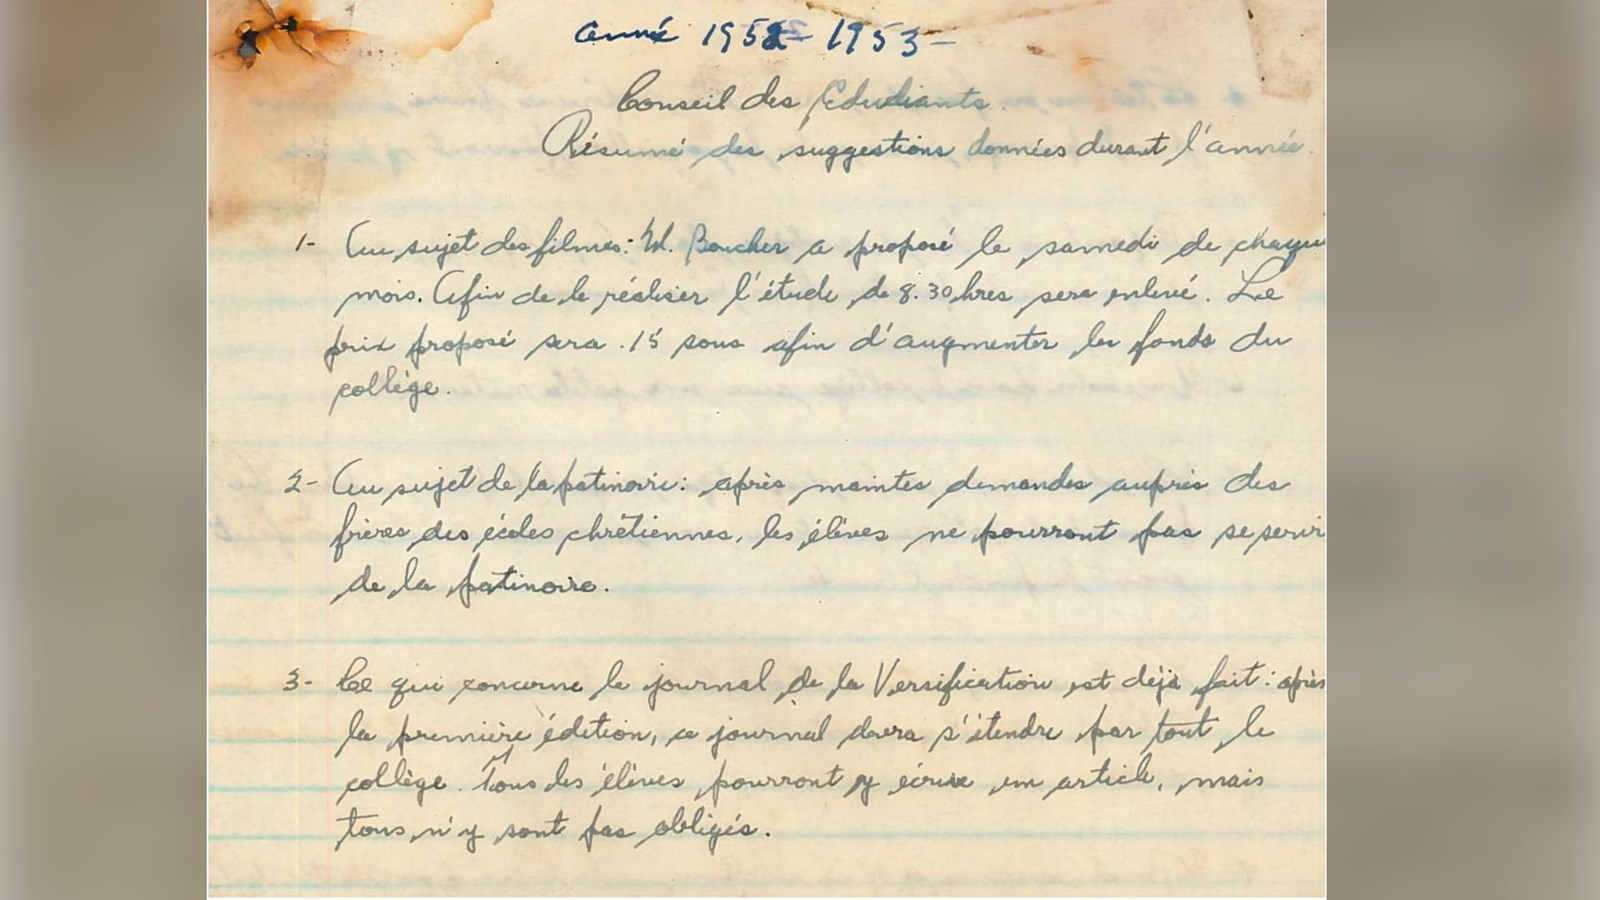 année 1952-1953-
Conseil des Edudiants.
Résumé des suggestions données durant l'année.
1- Au sujet des filmes: M. Boucher a proposé le samedi de chaque
mois. Afin de le réaliser l'étude de 8.30 hres sera enlevé. Le
prix proposé sera .15 sous afin d'augmenter les fonds du
collège.
2- Au sujet de la patinoire: après maintes demandes auprès des
frères des écoles chrétiennes, les élèves ne pourront pas se servir
de la patinoire.
3- Ce qui concerne le journal de la Versification est déjà fait: après
la première édition, ce journal devra s'étendre par tout le
collège. Tous les élèves pourront y écrire un article, mais
tous n'y sont pas obligés.